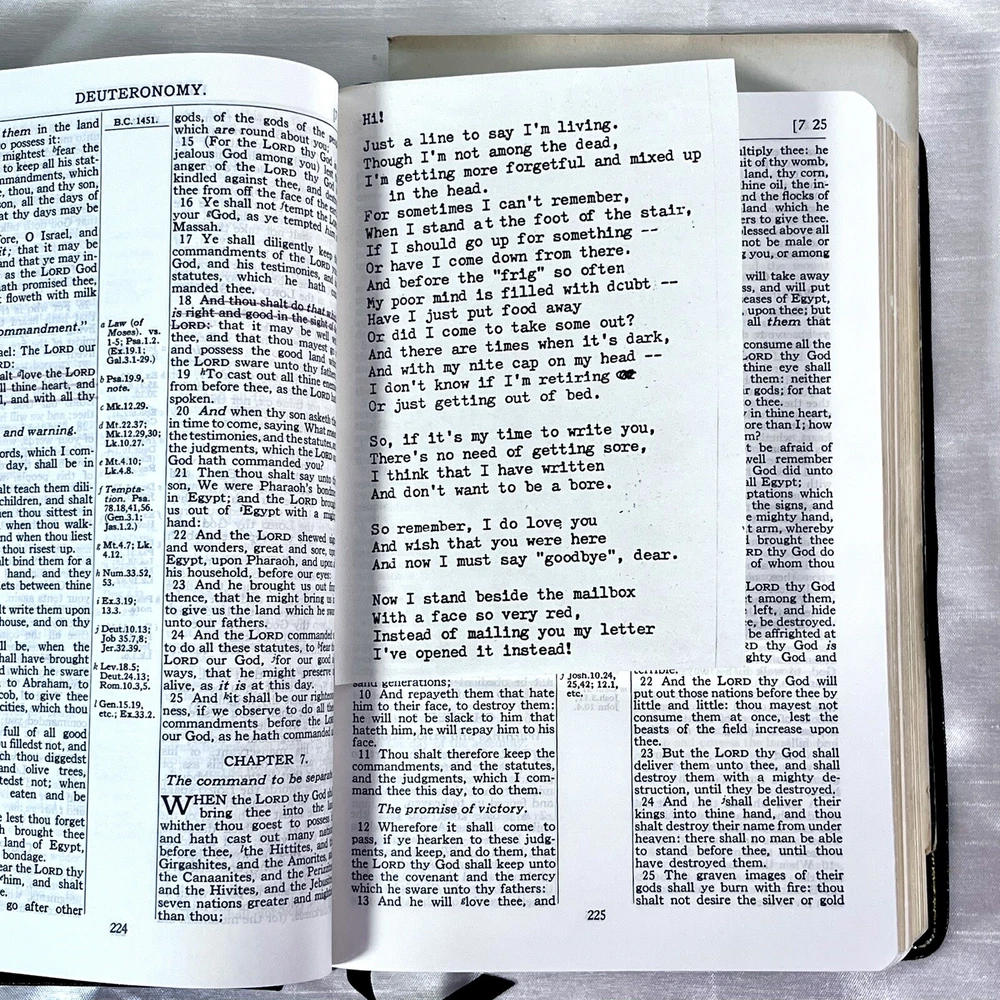 DEUTERONOMY.
them in the land
possess it:
mightest fear the
to keep all his stat-
mmandments, which
e, thou, and thy son,
son, all the days of
at thy days may be
ore, O Israel, and
it; that it may be
and that ye may in-
as the LORD God
ath promised thee,
floweth with milk
ommandment."
ael: The LORD our
RD:
alt love the LORD
ll thine heart, and
l, and with all thy
and warning.
ords, which I com-
day, shall be in
alt teach them dili-
children, and shalt
en thou sittest in
when thou walk-
nd when thou liest
thou risest up.
alt bind them for a
hand, and they
ets between thine
lt write them upon
house, and on thy
ll be, when the
hall have brought
d which he sware
to Abraham, to
cob, to give thee
cities, which thou
full of all good
u filledst not, and
ch thou diggedst
and olive trees,
tedst not; when
eaten and be
e lest thou forget
h brought thee
land of Egypt,
bondage.
ear the LORD thy
him, and shalt
e.
go after other
B.C. 1451.
a Law (of
Moses). vs.
1-5; Psa.1.2.
(Ex.19.1;
Gal.3.1-29.)
b Psa.19.9,
note.
c Mk.12.29.
d Mt.22.37;
Mk.12.29,30;
Lk.10.27.
e Mt.4.10;
Lk.4.8.
f Tempta-
tion. Psa.
78.18,41,56.
(Gen.3.1;
Jas.1.2.)
g Mt.4.7; Lk.
4.12.
h Num.33.52,
53.
i Ex.3.19;
13.3.
j Deut.10.13;
Job 35.7,8;
Jer.32.39.
k Lev.18.5;
Deut.24.13;
Rom.10.3,5.
l Gen.15.19,
etc.; Ex.33.2.
gods, of the gods of the
which are round about you;
15 (For the LORD thy G
jealous God among you) lest
anger of the LORD thy G
kindled against thee, and des
thee from off the face of the
16 Ye shall not ftempt the L
your gGod, as ye tempted him
Massah.
17 Ye shall diligently keep
commandments of the LORD y
God, and his testimonies, and
statutes, which he hath
manded thee.
18 And thou shalt do that w
is right and good in the sight of
LORD: that it may be well w
thee, and that thou mayest g
and possess the good land wh
the LORD sware unto thy fath
19 hTo cast out all thine enem
from before thee, as the LORD
spoken.
20 And when thy son asketh t
in time to come, saying, What me
the testimonies, and the statutes, a
the judgments, which the LORD
God hath commanded you?
21 Then thou shalt say unto t
son, We were Pharaoh's bondm
in Egypt; and the LORD broug
us out of iEgypt with a migh
hand:
22 And the LORD shewed sig
and wonders, great and sore, up
Egypt, upon Pharaoh, and upon
his household, before our eyes:
23 And he brought us out fro
thence, that he might bring us in
to give us the land which he swar
unto our fathers.
24 And the LORD commanded
to do all these statutes, to fear th
LORD our God, jfor our good a
ways, that he might preserve
alive, as it is at this day.
25 And kit shall be our righteous
ness, if we observe to do all the
commandments before the LORD
our God, as he hath commanded
CHAPTER 7.
The command to be separat
WHEN the LORD thy God sha
bring thee into the lan
whither thou goest to possess i
and hath cast out many nation
before thee, lthe Hittites, and th
Girgashites, and the Amorites, an
the Canaanites, and the Perizzi
and the Hivites, and the Jebusit
seven nations greater and might
than thou;
224
Hi!
Just a line to say I'm living.
Though I'm not among the dead,
I'm getting more forgetful and mixed up
in the head.
For sometimes I can't remember,
When I stand at the foot of the stair,
If I should go up for something --
Or have I come down from there.
And before the "frig" so often
My poor mind is filled with dcubt --
Have I just put food away
Or did I come to take some out?
And there are times when it's dark,
And with my nite cap on my head --
I don't know if I'm retiring
Or just getting out of bed.
So, if it's my time to write you,
There's no need of getting sore,
I think that I have written
And don't want to be a bore.
So remember, I do love you
And wish that you were here
And now I must say "goodbye", dear.
Now I stand beside the mailbox
With a face so very red,
Instead of mailing you my letter
I've opened it instead!
sand generations;
10 And repayeth them that hate
him to their face, to destroy them:
he will not be slack to him that
hateth him, he will repay him to his
face.
11 Thou shalt therefore keep the
commandments, and the statutes,
and the judgments, which I com-
mand thee this day, to do them.
The promise of victory.
12 Wherefore it shall come to
pass, if ye hearken to these judg-
ments, and keep, and do them, that
the LORD thy God shall keep unto
thee the covenant and the mercy
which he sware unto thy fathers:
13 And he will glove thee, and
j Josh.10.24,
25,42; 12.1,
etc.
[7 25
ultiply thee: he
uit of thy womb,
land, thy corn,
hine oil, the in-
nd the flocks of
land which he
ers to give thee.
lessed above all
not be male or
g you, or among
will take away
ess, and will put
eases of Egypt,
upon thee; but
all them that
consume all the
RD thy God
thine eye shall
them: neither
r gods; for that
o thee.
y in thine heart,
ore than I; how
m?
t be afraid of
well remember
God did unto
all Egypt;
ptations which
the signs, and
e mighty hand,
t arm, whereby
brought thee
RD thy God do
of whom thou
LORD thy God
t among them,
left, and hide
e, be destroyed.
be affrighted at
RD thy God is
ghty God and
terrible.
22 And the LORD thy God will
put out those nations before thee by
little and little: thou mayest not
consume them at once, lest the
beasts of the field increase upon
thee.
23 But the LORD thy God shall
deliver them unto thee, and shall
destroy them with a mighty de-
struction, until they be destroyed.
24 And he jshall deliver their
kings into thine hand, and thou
shalt destroy their name from under
heaven: there shall no man be able
to stand before thee, until thou
have destroyed them.
25 The graven images of their
gods shall ye burn with fire: thou
shalt not desire the silver or gold
225